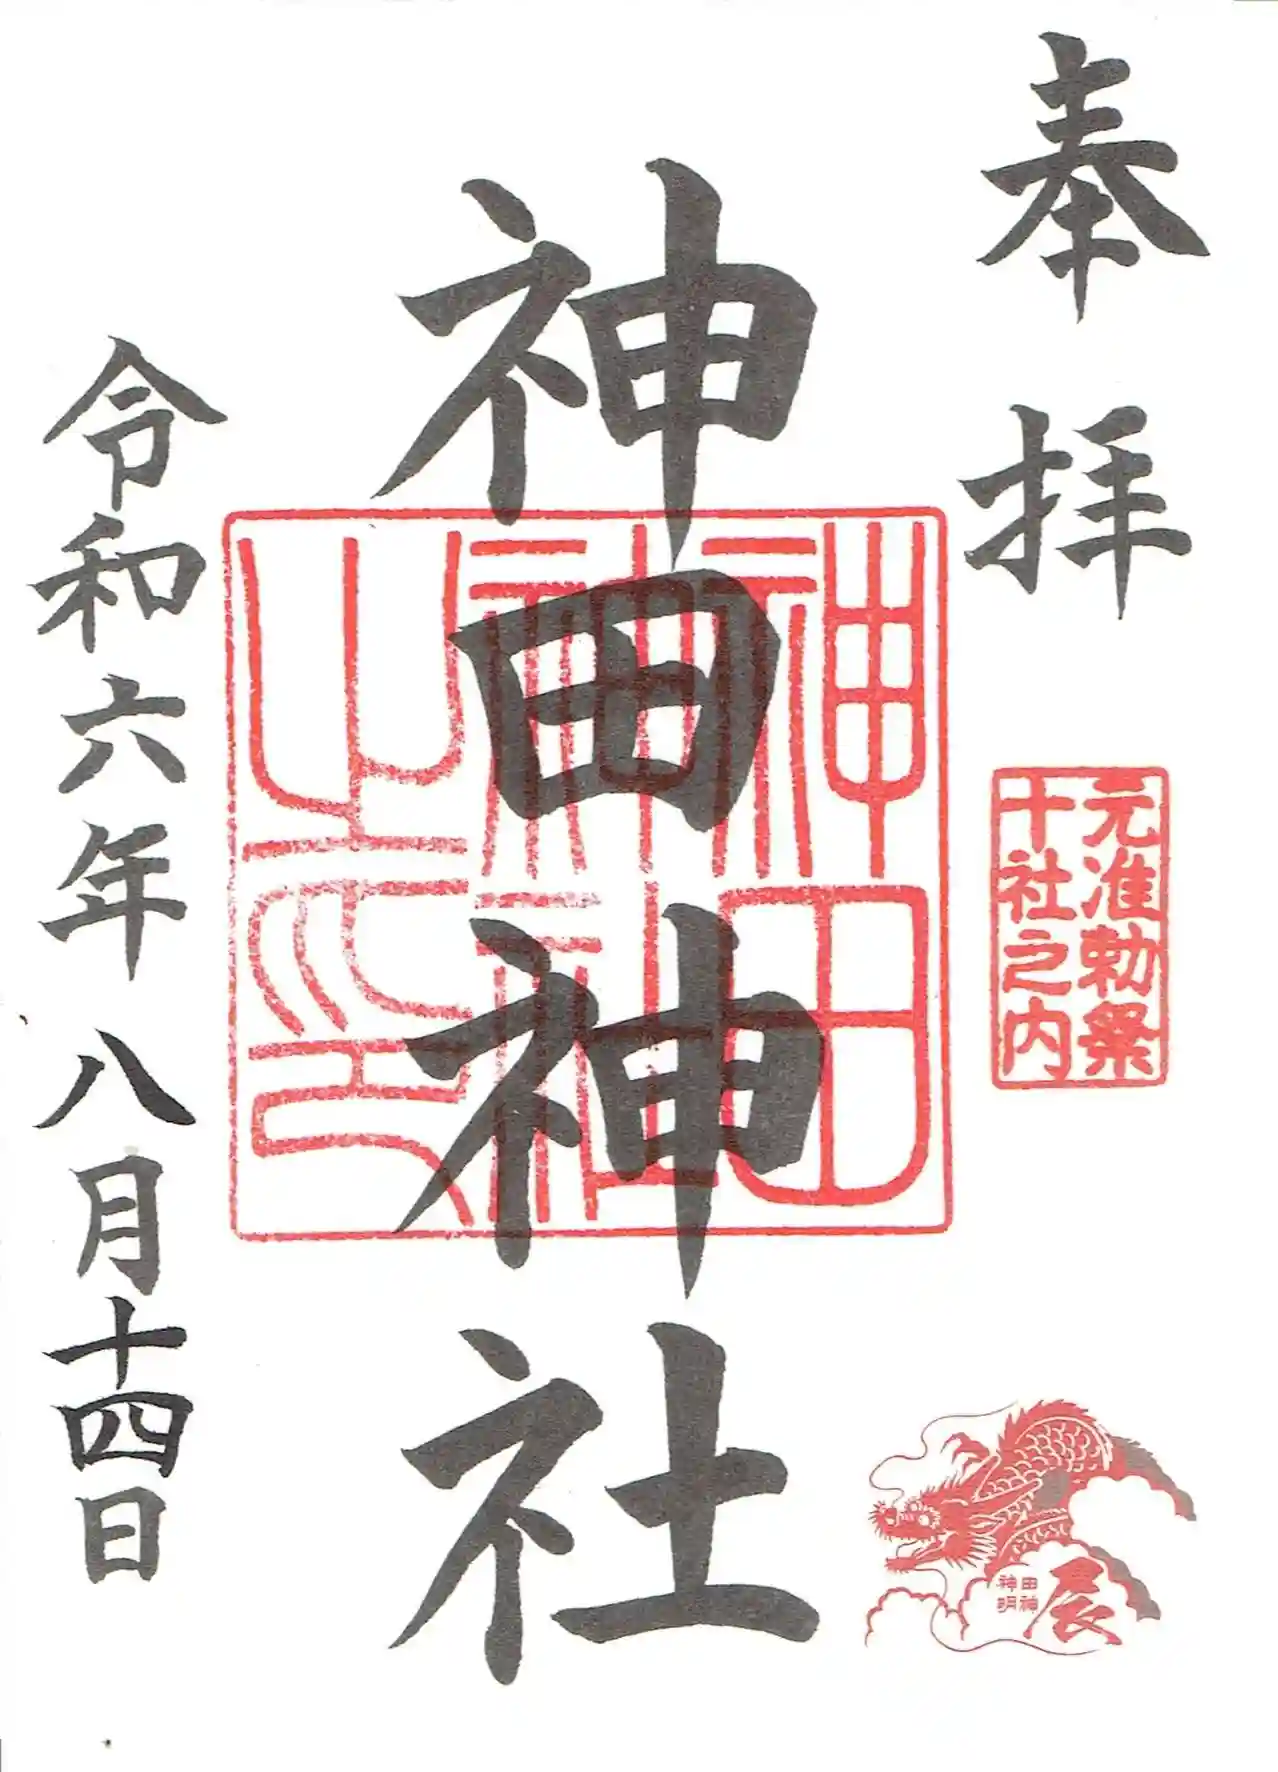 奉拝
元准勅祭
十社之内
田神
神明
辰
神田神社
神田
神社
之印
令和六年八月十四日